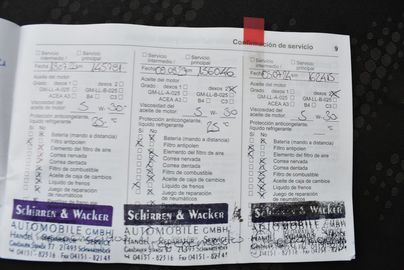 Confirmación de servicio 9
Servicio intermedio / Servicio principal
Fecha 145791
Aceite del motor
Grado: dexos 1 dexos 2
GM-LL-A-025 GM-LL-B-025
ACEA A3 B4 C3
Viscosidad del aceite de motor 5 W- 30
Protección anticongelante: líquido refrigerante 25 °C
Sí No
Batería (mando a distancia)
Filtro antipolen
Elemento del filtro de aire
Correa nervada
Correa dentada
Filtro de combustible
Aceite de caja de cambios
Líquido de frenos
Juego de reparación de neumáticos
Schirren & Wacker
AUTOMOBILE GMBH
Servicio intermedio / Servicio principal
Fecha 156046
Aceite del motor
Grado: dexos 1 dexos 2
GM-LL-A-025 GM-LL-B-025
ACEA A3 B4 C3
Viscosidad del aceite de motor 5 W- 30
Protección anticongelante: líquido refrigerante 25 °C
Sí No
Batería (mando a distancia)
Filtro antipolen
Elemento del filtro de aire
Correa nervada
Correa dentada
Filtro de combustible
Aceite de caja de cambios
Líquido de frenos
Juego de reparación de neumáticos
Schirren & Wacker
AUTOMOBILE GMBH
Servicio intermedio / Servicio principal
Fecha 162415
Aceite del motor
Grado: dexos 1 dexos 2
GM-LL-A-025 GM-LL-B-025
ACEA A3 B4 C3
Viscosidad del aceite de motor 5 W- 30
Protección anticongelante: líquido refrigerante °C
Sí No
Batería (mando a distancia)
Filtro antipolen
Elemento del filtro de aire
Correa nervada
Correa dentada
Filtro de combustible
Aceite de caja de cambios
Líquido de frenos
Juego de reparación de neumáticos
Schirren & Wacker
AUTOMOBILE GMBH